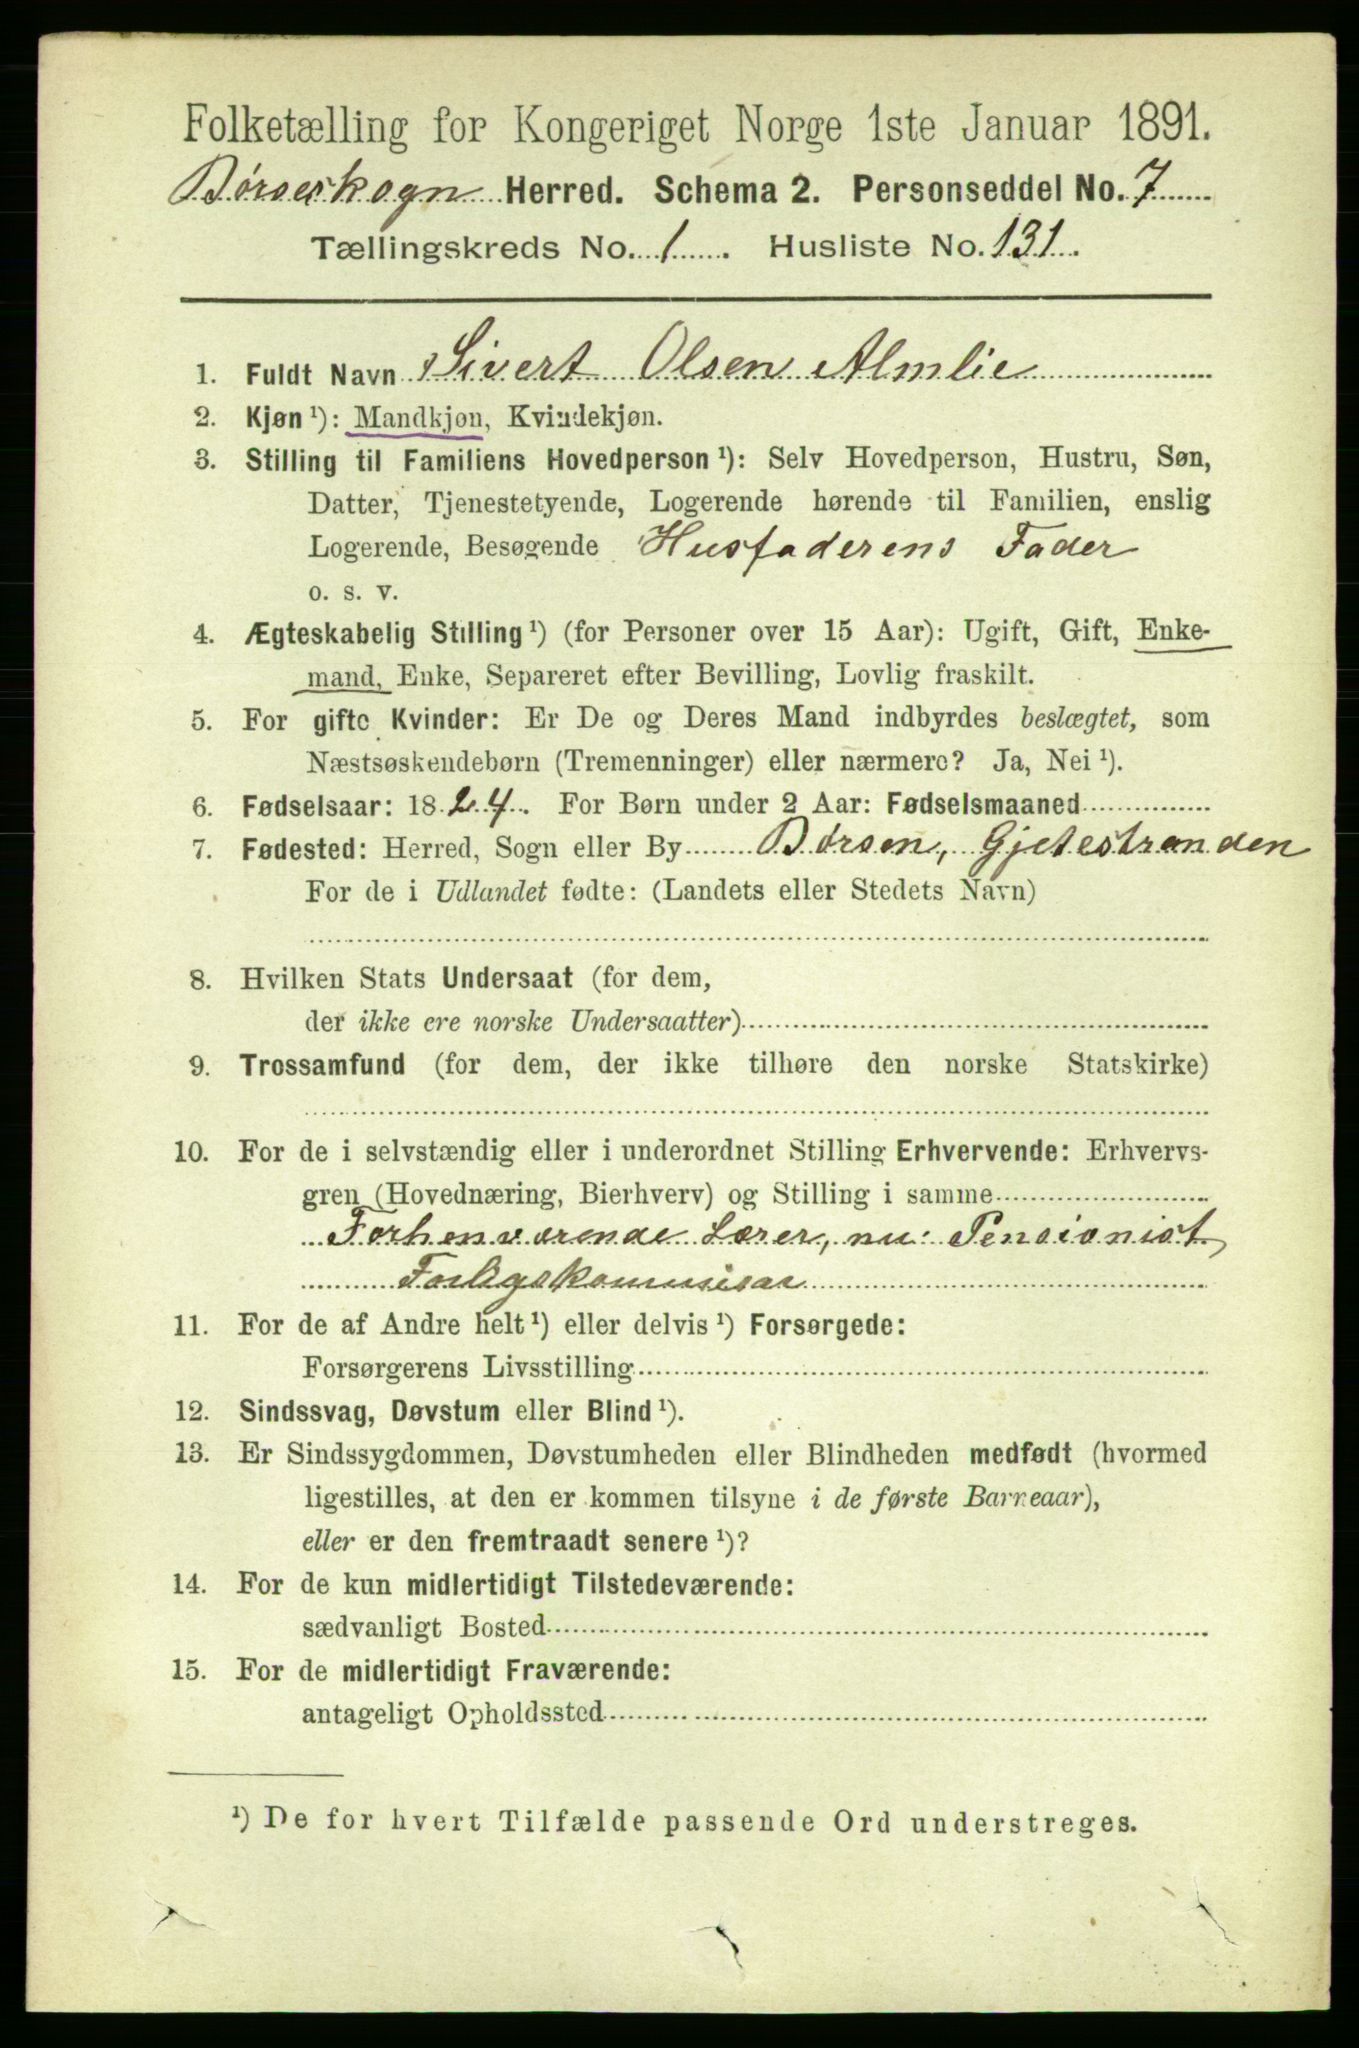 Folketælling for Kongeriget Norge 1ste Januar 1891.
Børseskogn Herred. Schema 2. Personseddel No. 7
Tællingskreds No. 1. Husliste No. 131.
1. Fuldt Navn Sivert Olsen Almlie
2. Kjøn ¹): Mandkjøn, Kvindekjøn.
3. Stilling til Familiens Hovedperson ¹): Selv Hovedperson, Hustru, Søn,
Datter, Tjenestetyende, Logerende hørende til Familien, enslig
Logerende, Besøgende Husfaderens Fader
o. s. v.
4. Ægteskabelig Stilling ¹) (for Personer over 15 Aar): Ugift, Gift, Enke-
mand, Enke, Separeret efter Bevilling, Lovlig fraskilt.
5. For gifte Kvinder: Er De og Deres Mand indbyrdes beslægtet, som
Næstsøskendebørn (Tremenninger) eller nærmere? Ja, Nei ¹).
6. Fødselsaar: 1824. For Børn under 2 Aar: Fødselsmaaned
7. Fødested: Herred, Sogn eller By Børsen, Gjetestranden
For de i Udlandet fødte: (Landets eller Stedets Navn)
8. Hvilken Stats Undersaat (for dem,
der ikke ere norske Undersaatter)
9. Trossamfund (for dem, der ikke tilhøre den norske Statskirke)
10. For de i selvstændig eller i underordnet Stilling Erhvervende: Erhvervs-
gren (Hovednæring, Bierhverv) og Stilling i samme
Forhenværende Lærer, nu: Pensionist,
Forligskommisær
11. For de af Andre helt ¹) eller delvis ¹) Forsørgede:
Forsørgerens Livsstilling
12. Sindssvag, Døvstum eller Blind ¹).
13. Er Sindssygdommen, Døvstumheden eller Blindheden medfødt (hvormed
ligestilles, at den er kommen tilsyne i de første Barneaar),
eller er den fremtraadt senere ¹)?
14. For de kun midlertidigt Tilstedeværende:
sædvanligt Bosted
15. For de midlertidigt Fraværende:
antageligt Opholdssted
¹) De for hvert Tilfælde passende Ord understreges.